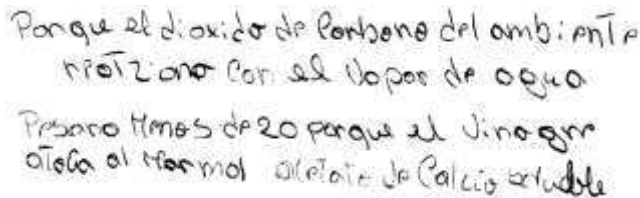 Porque el dioxido de Carbono del ambiente
reacziona con el Vapor de agua
Pesaro Menos de 20 porque el Vinagre
ataca al Marmol acetato de Calcio soluble